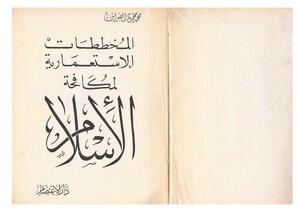 محمد محمود الصواف
المخططات
الاستعمارية
لمكافحة
الإسلام
دار الاعتصام